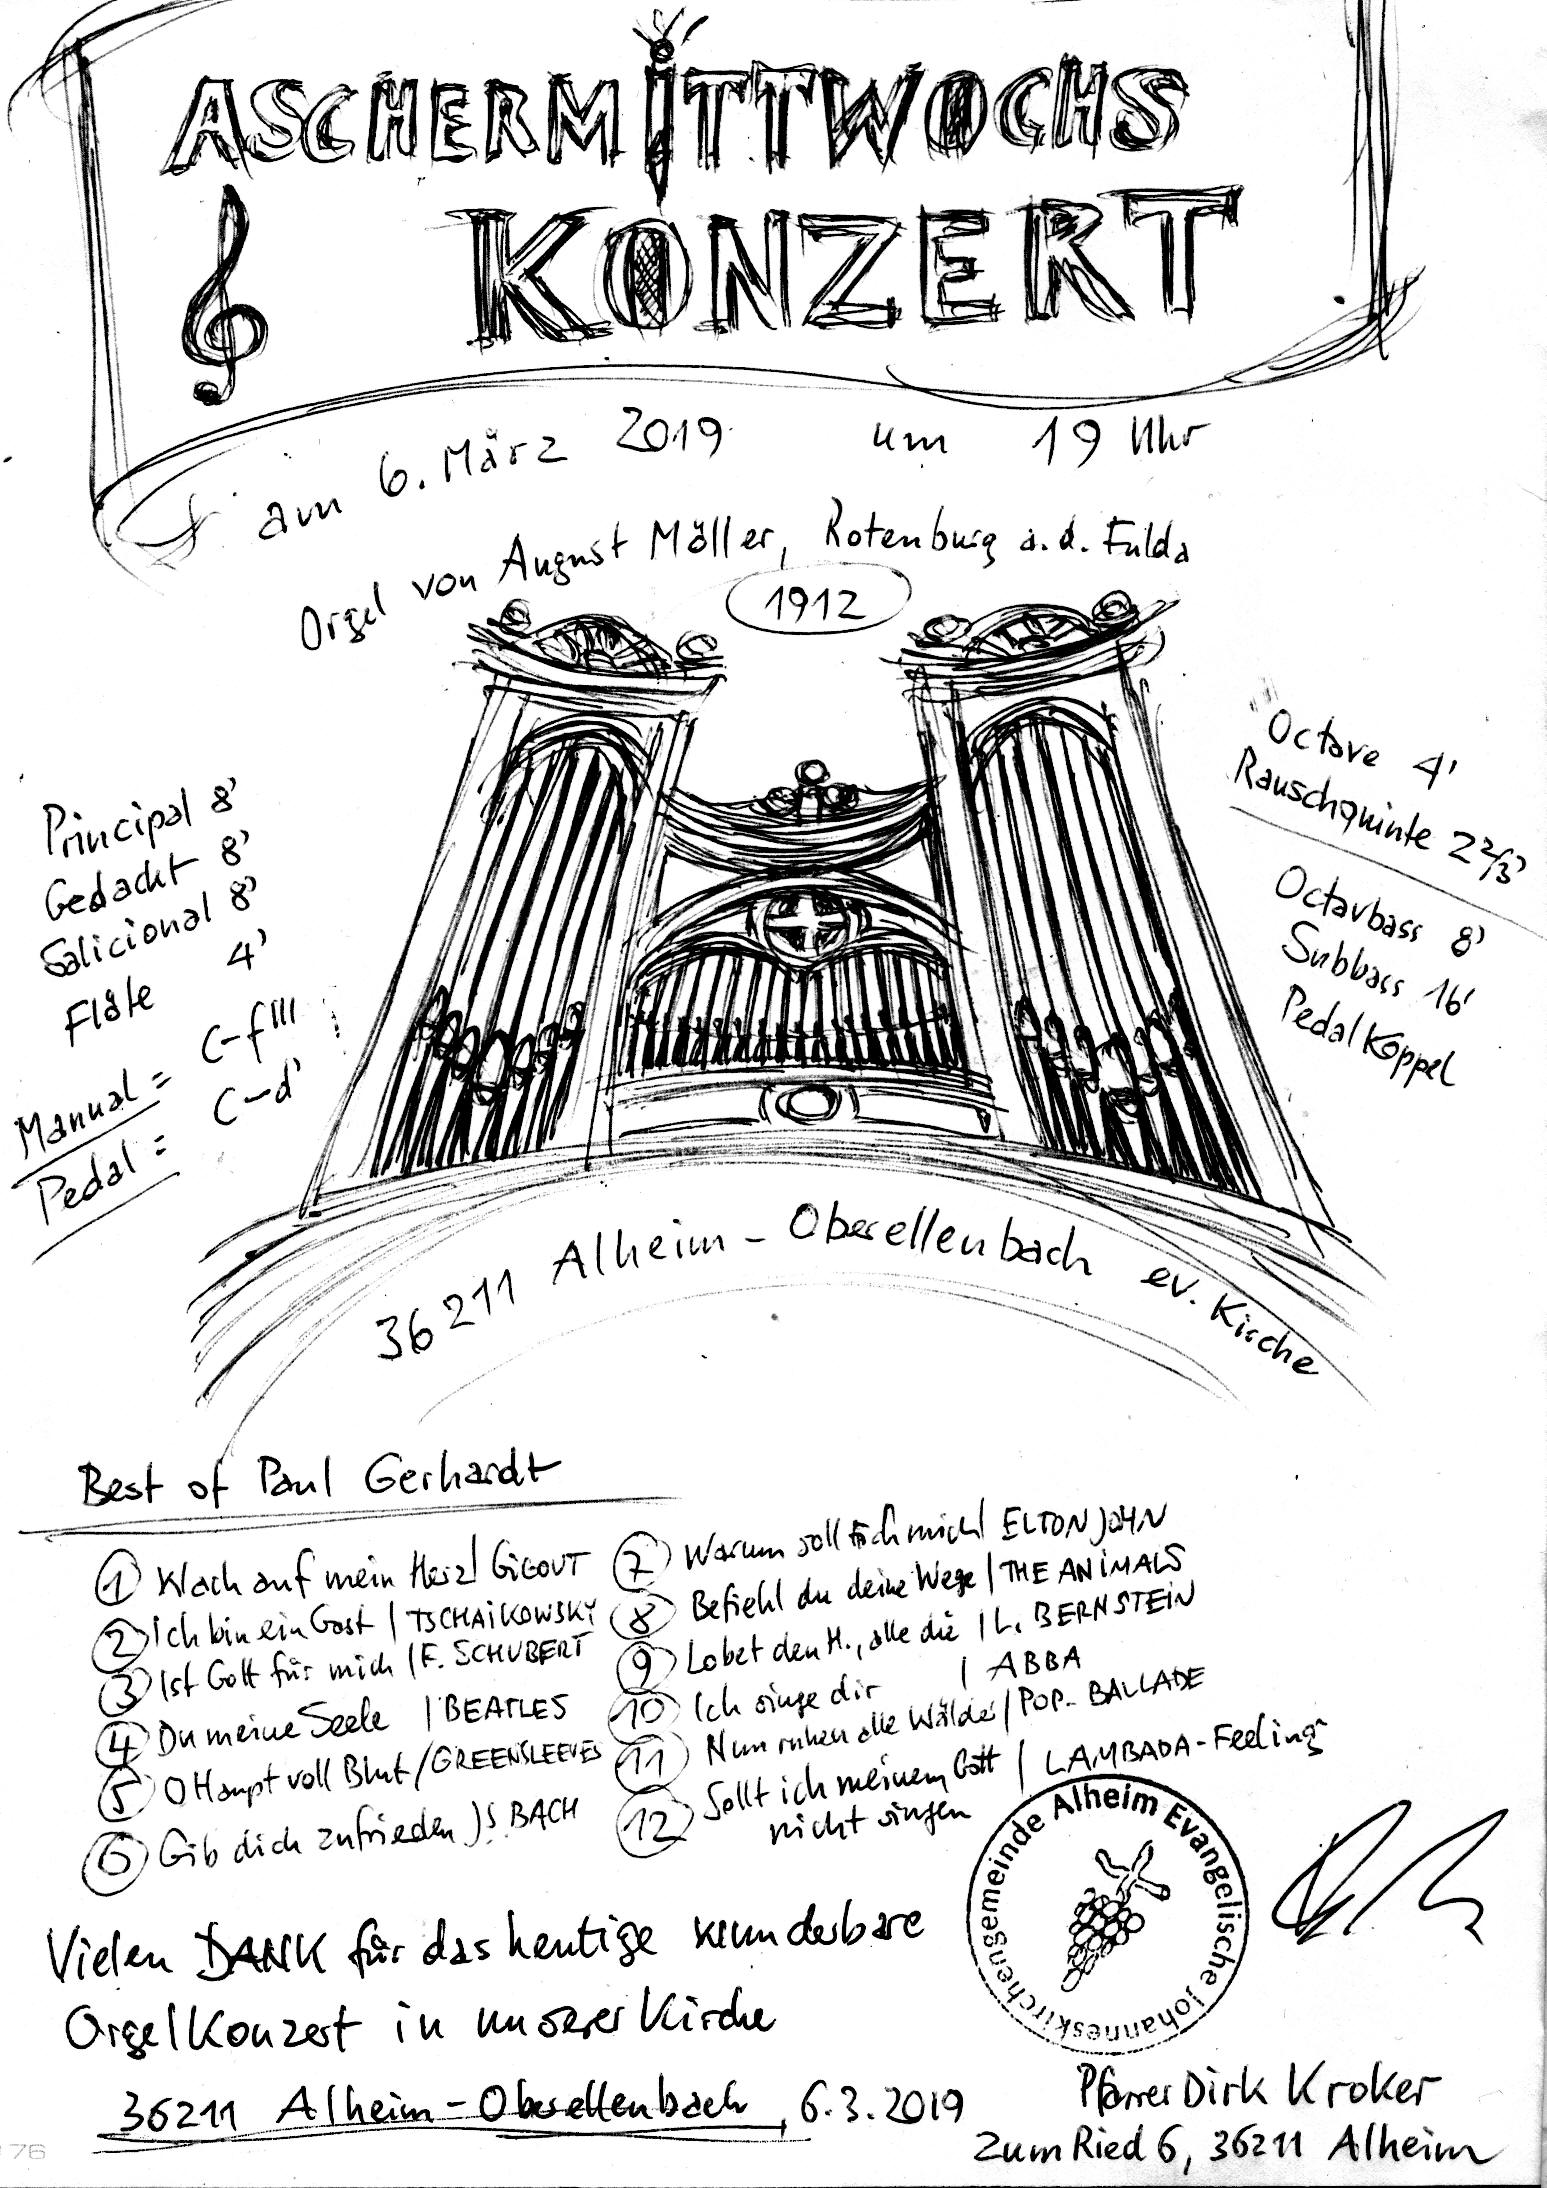 ASCHERMiTTWOCHS
KONZERT
am 6. März 2019 um 19 Uhr
Orgel von August Möller, Rotenburg a.d. Fulda
1912
Principal 8'
Gedackt 8'
Salicional 8'
Flöte 4'
Manual = C-f'''
Pedal = C-d'
Octave 4'
Rauschquinte 2 2/3'
Octavbass 8'
Subbass 16'
PedalKoppel
36211 Alheim - Oberellenbach ev. Kirche
Best of Paul Gerhardt
1 Wach auf mein Herz | GIGOUT
2 Ich bin ein Gast | TSCHAiKOWSKY
3 Ist Gott für mich | F. SCHUBERT
4 Du meine Seele | BEATLES
5 O Haupt voll Blut / GREENSLEEVES
6 Gib dich zufrieden JS. BACH
7 Warum sollt ich mich | ELTON JOHN
8 Befiehl du deine Wege | THE ANiMALS
9 Lobet den H., alle die | L. BERNSTEiN
10 Ich singe dir | ABBA
11 Nun ruhen alle Wälder | POP-BALLADE
12 Sollt ich meinem Gott | LAMBADA-Feeling
nicht singen
Vielen DANK für das heutige wunderbare
OrgelKonzert in unserer Kirche
36211 Alheim-Oberellenbach, 6.3.2019
Evangelische Johanneskirchengemeinde Alheim
Pfarrer Dirk Kroker
Zum Ried 6, 36211 Alheim
76